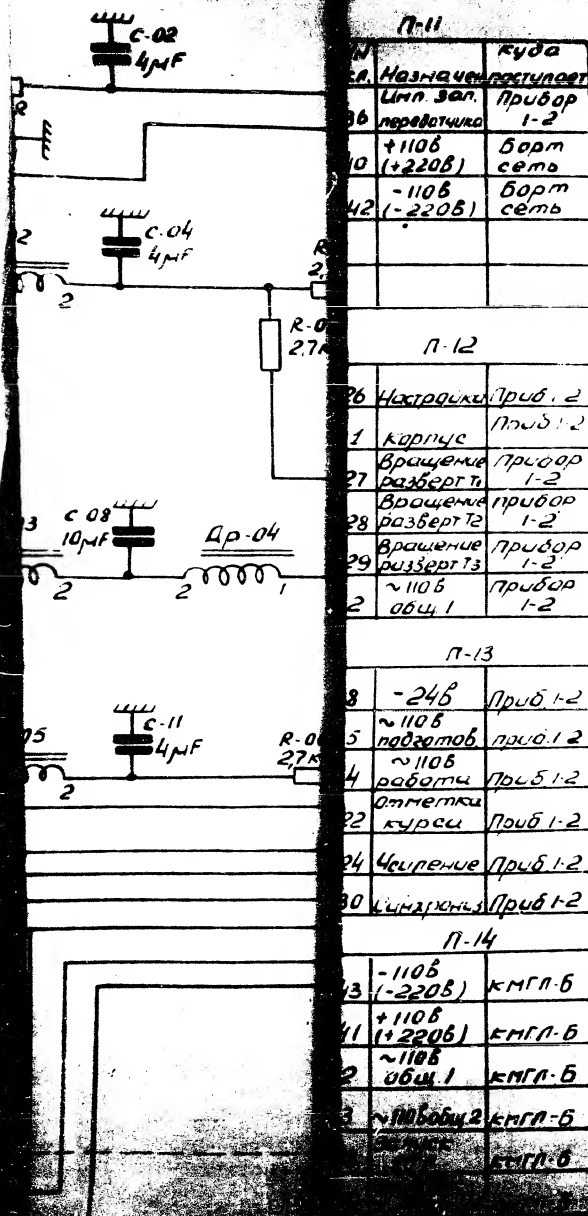 C-02
4µF
2
C-04
4µF
2
2,7к
C 08
10µF
Др-04
2
2
1
05
C-11
4µF
2
2,7к
П-11
Назначен
куда
поступает
36 Имп. зап.
передатчика
Прибор
1-2
40 +110в
(+220в)
Борт
сеть
42 -110в
(-220в)
Борт
сеть
П-12
26 Настройки Приб. 2
1 Корпус Приб 1-2
27 Вращение
разверт Т1
Прибор
1-2
28 Вращение
разверт Т2
прибор
1-2
29 Вращение
разверт Т3
Прибор
1-2
2 ~110в
общ. 1
Прибор
1-2
П-13
8 -24в Приб. 1-2
5 ~110в
подготов. приб. 1-2
4 ~110в
работа Приб 1-2
22 отметка
курса Приб 1-2
24 Усиление Приб 1-2
30 Синхрониз Приб 1-2
П-14
43 -110в
(-220в) КМГЛ-Б
41 +110в
(+220в) КМГЛ-Б
2 ~110в
общ. 1 КМГЛ-Б
3 ~110в общ 2 КМГЛ-Б
КМГЛ-Б